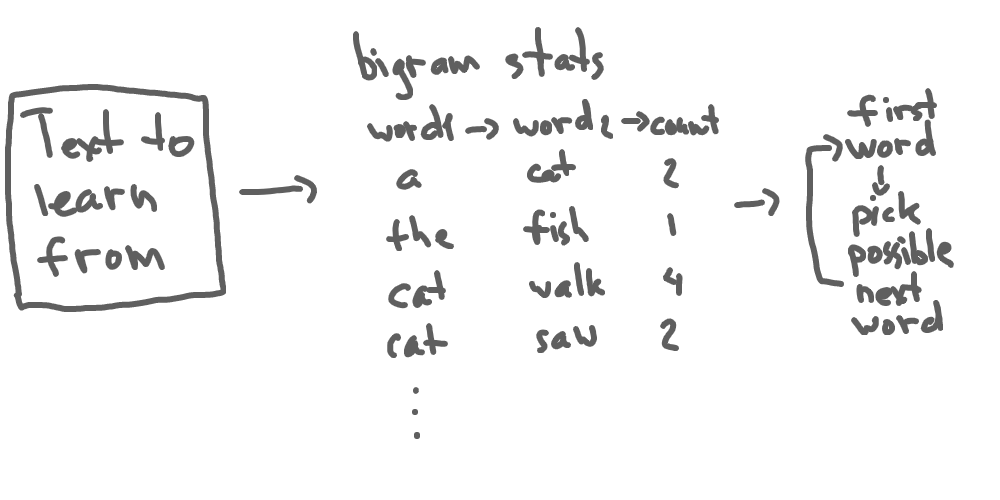 Text to
learn
from
bigram stats
word1 → word2 → count
a cat 2
the fish 1
cat walk 4
cat saw 2
first
word
pick
possible
next
word